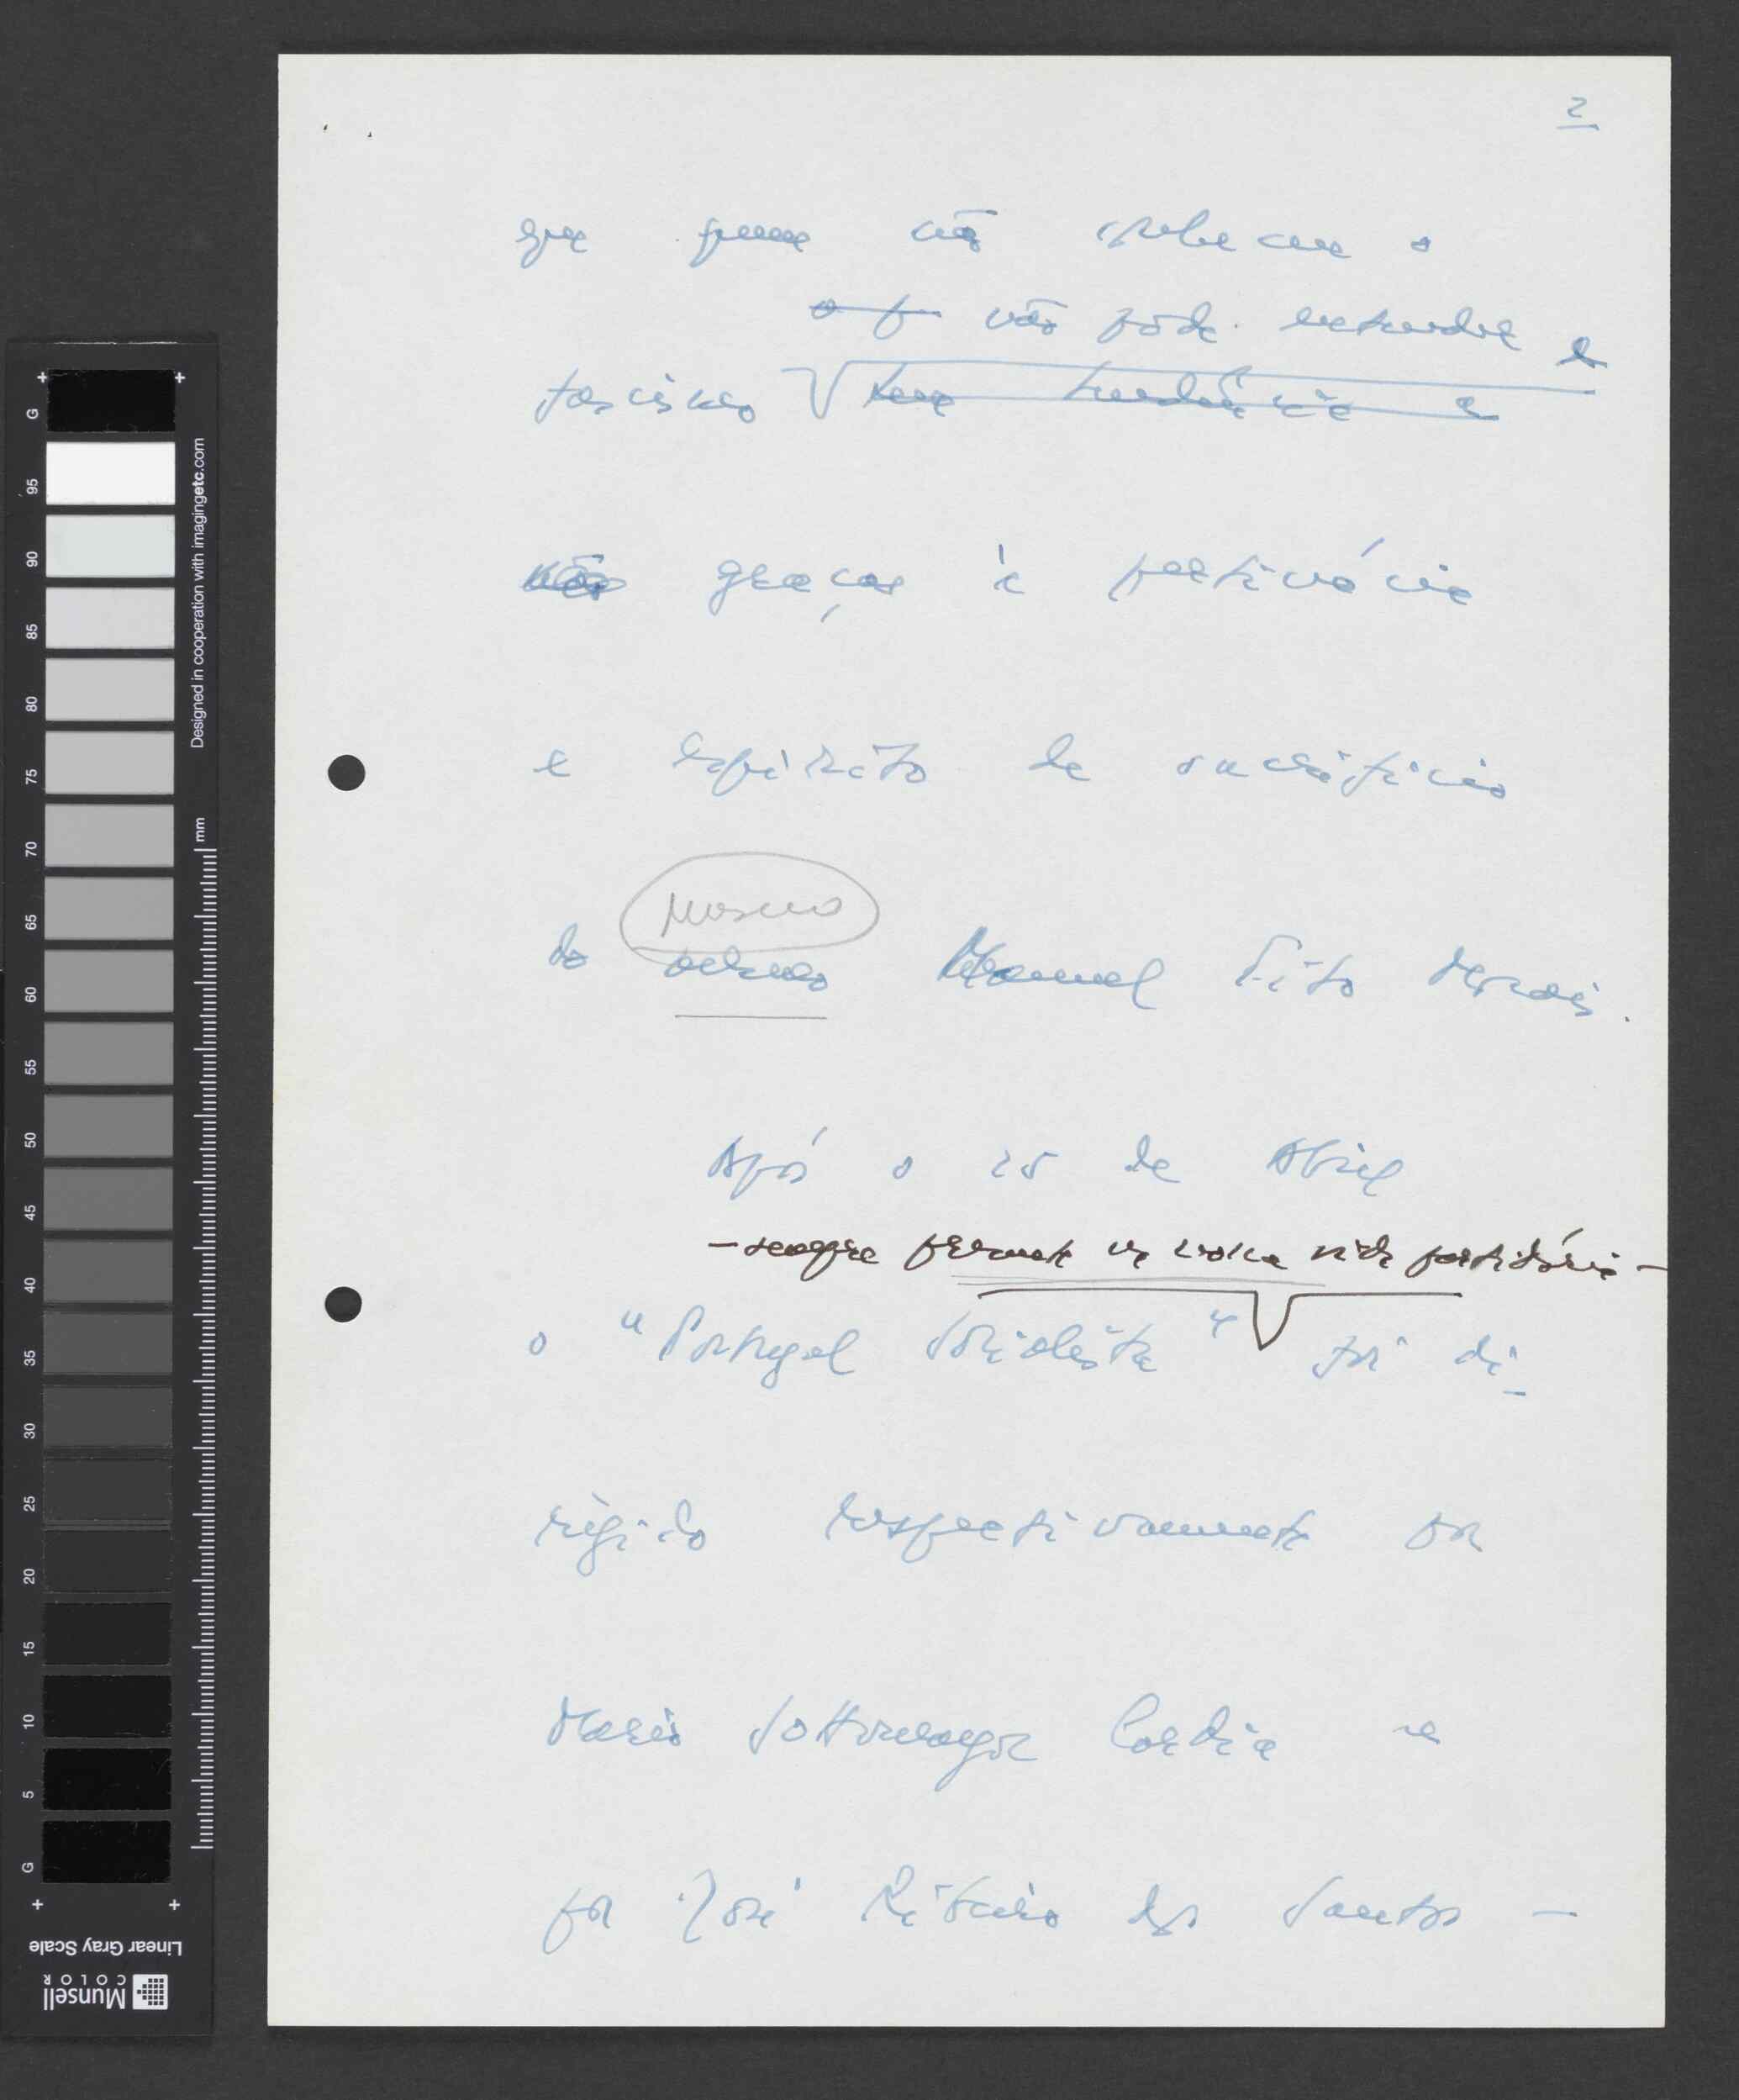 2
que quem não
o f não pôde entender e
fascismo tem tendência a
não graças à pertinácia
e espírito de sacrifício
nosso
do Manuel Tito Morais.
Após o 25 de Abril
– sempre presente na nossa vida partidária –
o "Portugal Socialista" foi di-
rigido respectivamente por
Mário Sottomayor Cardia e
por José Ribeiro dos Santos –
G
95
90
85
80
75
70
65
60
55
50
45
40
35
30
25
20
15
10
5
G
Designed in cooperation with imagingetc.com
mm
Linear Gray Scale
Munsell
COLOR